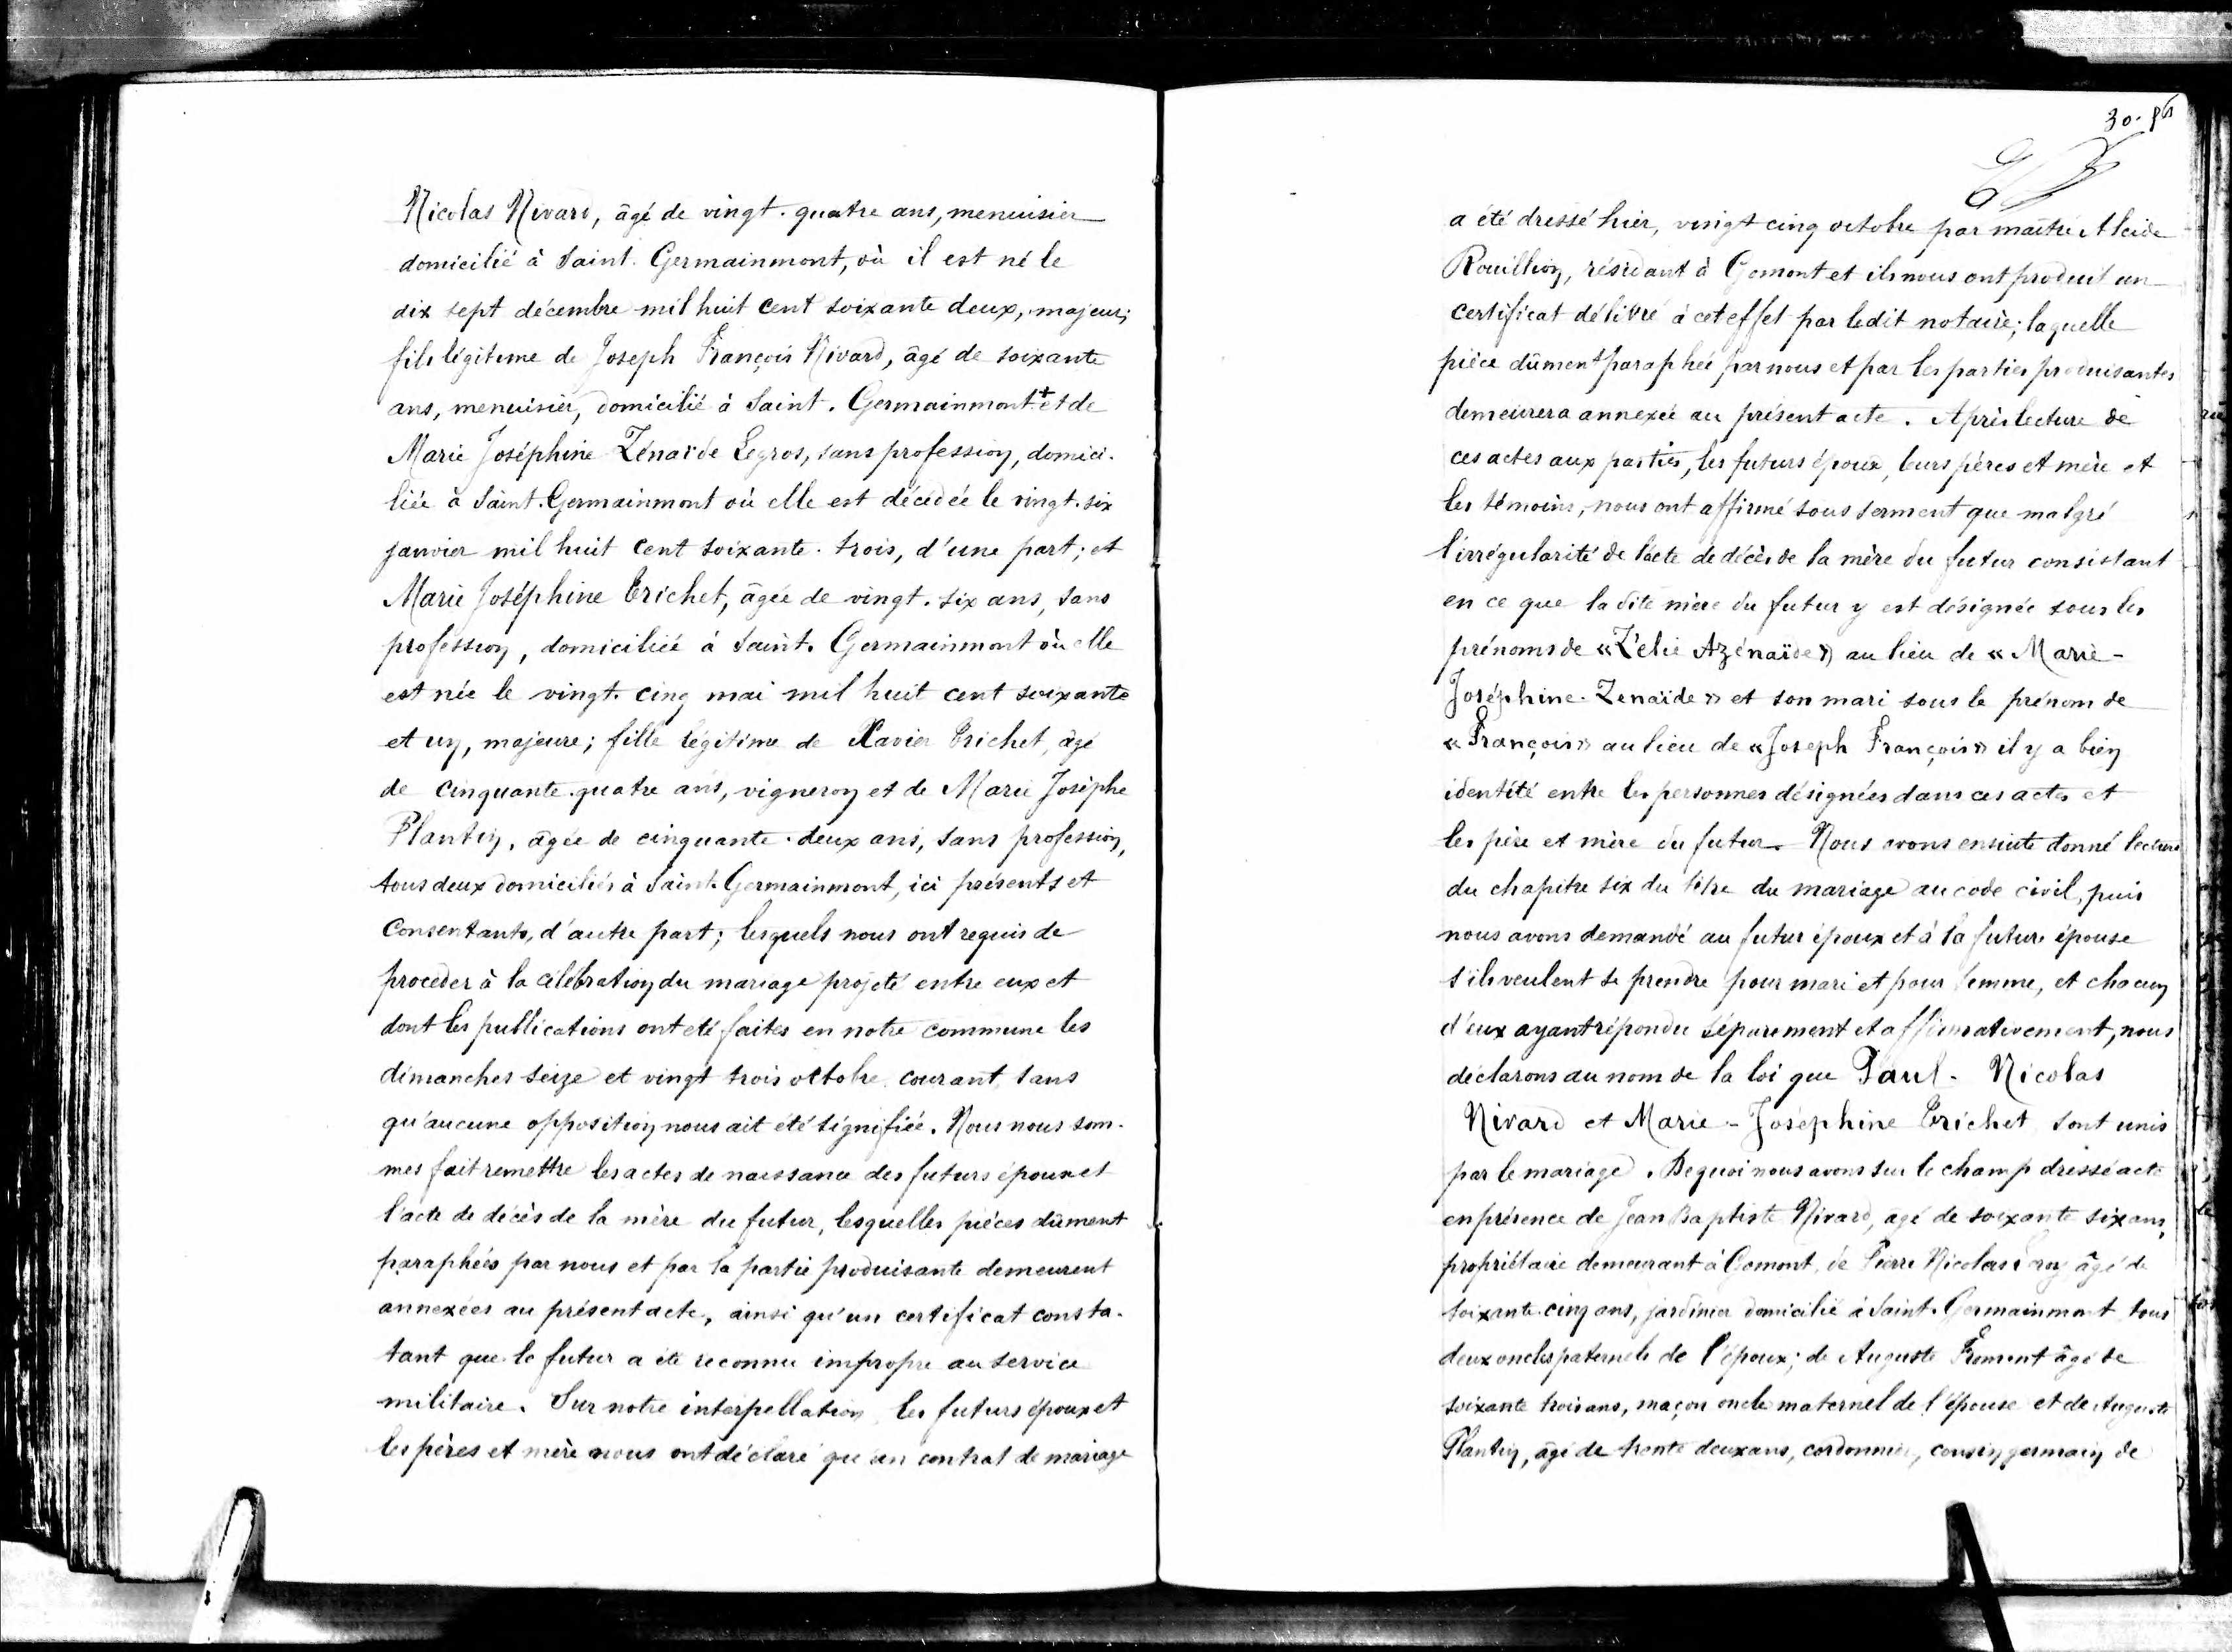 Nicolas Nivard, âgé de vingt-quatre ans, menuisier
domicilié à Saint-Germainmont, où il est né le
dix sept décembre mil huit cent soixante deux, majeur;
fils légitime de Joseph François Nivard, âgé de soixante
ans, menuisier, domicilié à Saint-Germainmont + et de
Marie Joséphine Zénaïde Legros, sans profession, domici-
liée à Saint-Germainmont où elle est décédée le vingt-six
janvier mil huit cent soixante-trois, d'une part; et
Marie Joséphine Erichet, âgée de vingt-six ans, sans
profession, domiciliée à Saint-Germainmont où elle
est née le vingt-cinq mai mil huit cent soixante
et un, majeure; fille légitime de Xavier Erichet, âgé
de cinquante-quatre ans, vigneron et de Marie Josèphe
Plantin, âgée de cinquante-deux ans, sans profession,
tous deux domiciliés à Saint-Germainmont, ici présents et
consentants, d'autre part; lesquels nous ont requis de
procéder à la célébration du mariage projeté entre eux et
dont les publications ont été faites en notre commune les
dimanches seize et vingt trois octobre courant, sans
qu'aucune opposition nous ait été signifiée. Nous nous som-
mes fait remettre les actes de naissance des futurs époux et
l'acte de décès de la mère du futur, lesquelles pièces dûment
paraphées par nous et par la partie produisante demeurent
annexées au présent acte, ainsi qu'un certificat consta-
tant que le futur a été reconnu impropre au service
militaire. Sur notre interpellation les futurs époux et
les pères et mère nous ont déclaré qu'un contrat de mariage
30.
a été dressé hier, vingt cinq octobre par maître Alcide
Rouillion, résidant à Gomont et ils nous ont produit un
certificat délivré à cet effet par ledit notaire; laquelle
pièce dûment paraphée par nous et par les parties produisantes
demeurera annexée au présent acte. Après lecture de
ces actes aux parties, les futurs époux, leurs pères et mère et
les témoins, nous ont affirmé sous serment que malgré
l'irrégularité de l'acte de décès de la mère du futur consistant
en ce que la dite mère du futur y est désignée sous les
prénoms de «Zélie Azénaïde» au lieu de «Marie-
Joséphine-Zenaïde» et son mari sous le prénom de
«François» au lieu de «Joseph François» il y a bien
identité entre les personnes désignées dans ces actes et
les père et mère du futur. Nous avons ensuite donné lecture
du chapitre six du titre du mariage au code civil, puis
nous avons demandé au futur époux et à la future épouse
s'ils veulent se prendre pour mari et pour femme, et chacun
d'eux ayant répondu séparement et affirmativement, nous
déclarons au nom de la loi que Paul-Nicolas
Nivard et Marie-Joséphine Erichet sont unis
par le mariage. De quoi nous avons sur le champ dressé acte
en présence de Jean Baptiste Nivard, âgé de soixante six ans,
propriétaire demeurant à Gomont, de Pierre Nicolas âgé de
soixante-cinq ans, jardinier domicilié à Saint-Germainmont tous
deux oncles paternels de l'époux; de Auguste Froment âgé de
soixante trois ans, maçon oncle maternel de l'épouse et de Auguste
Plantin, âgé de trente deux ans, cordonnier, cousin germain de